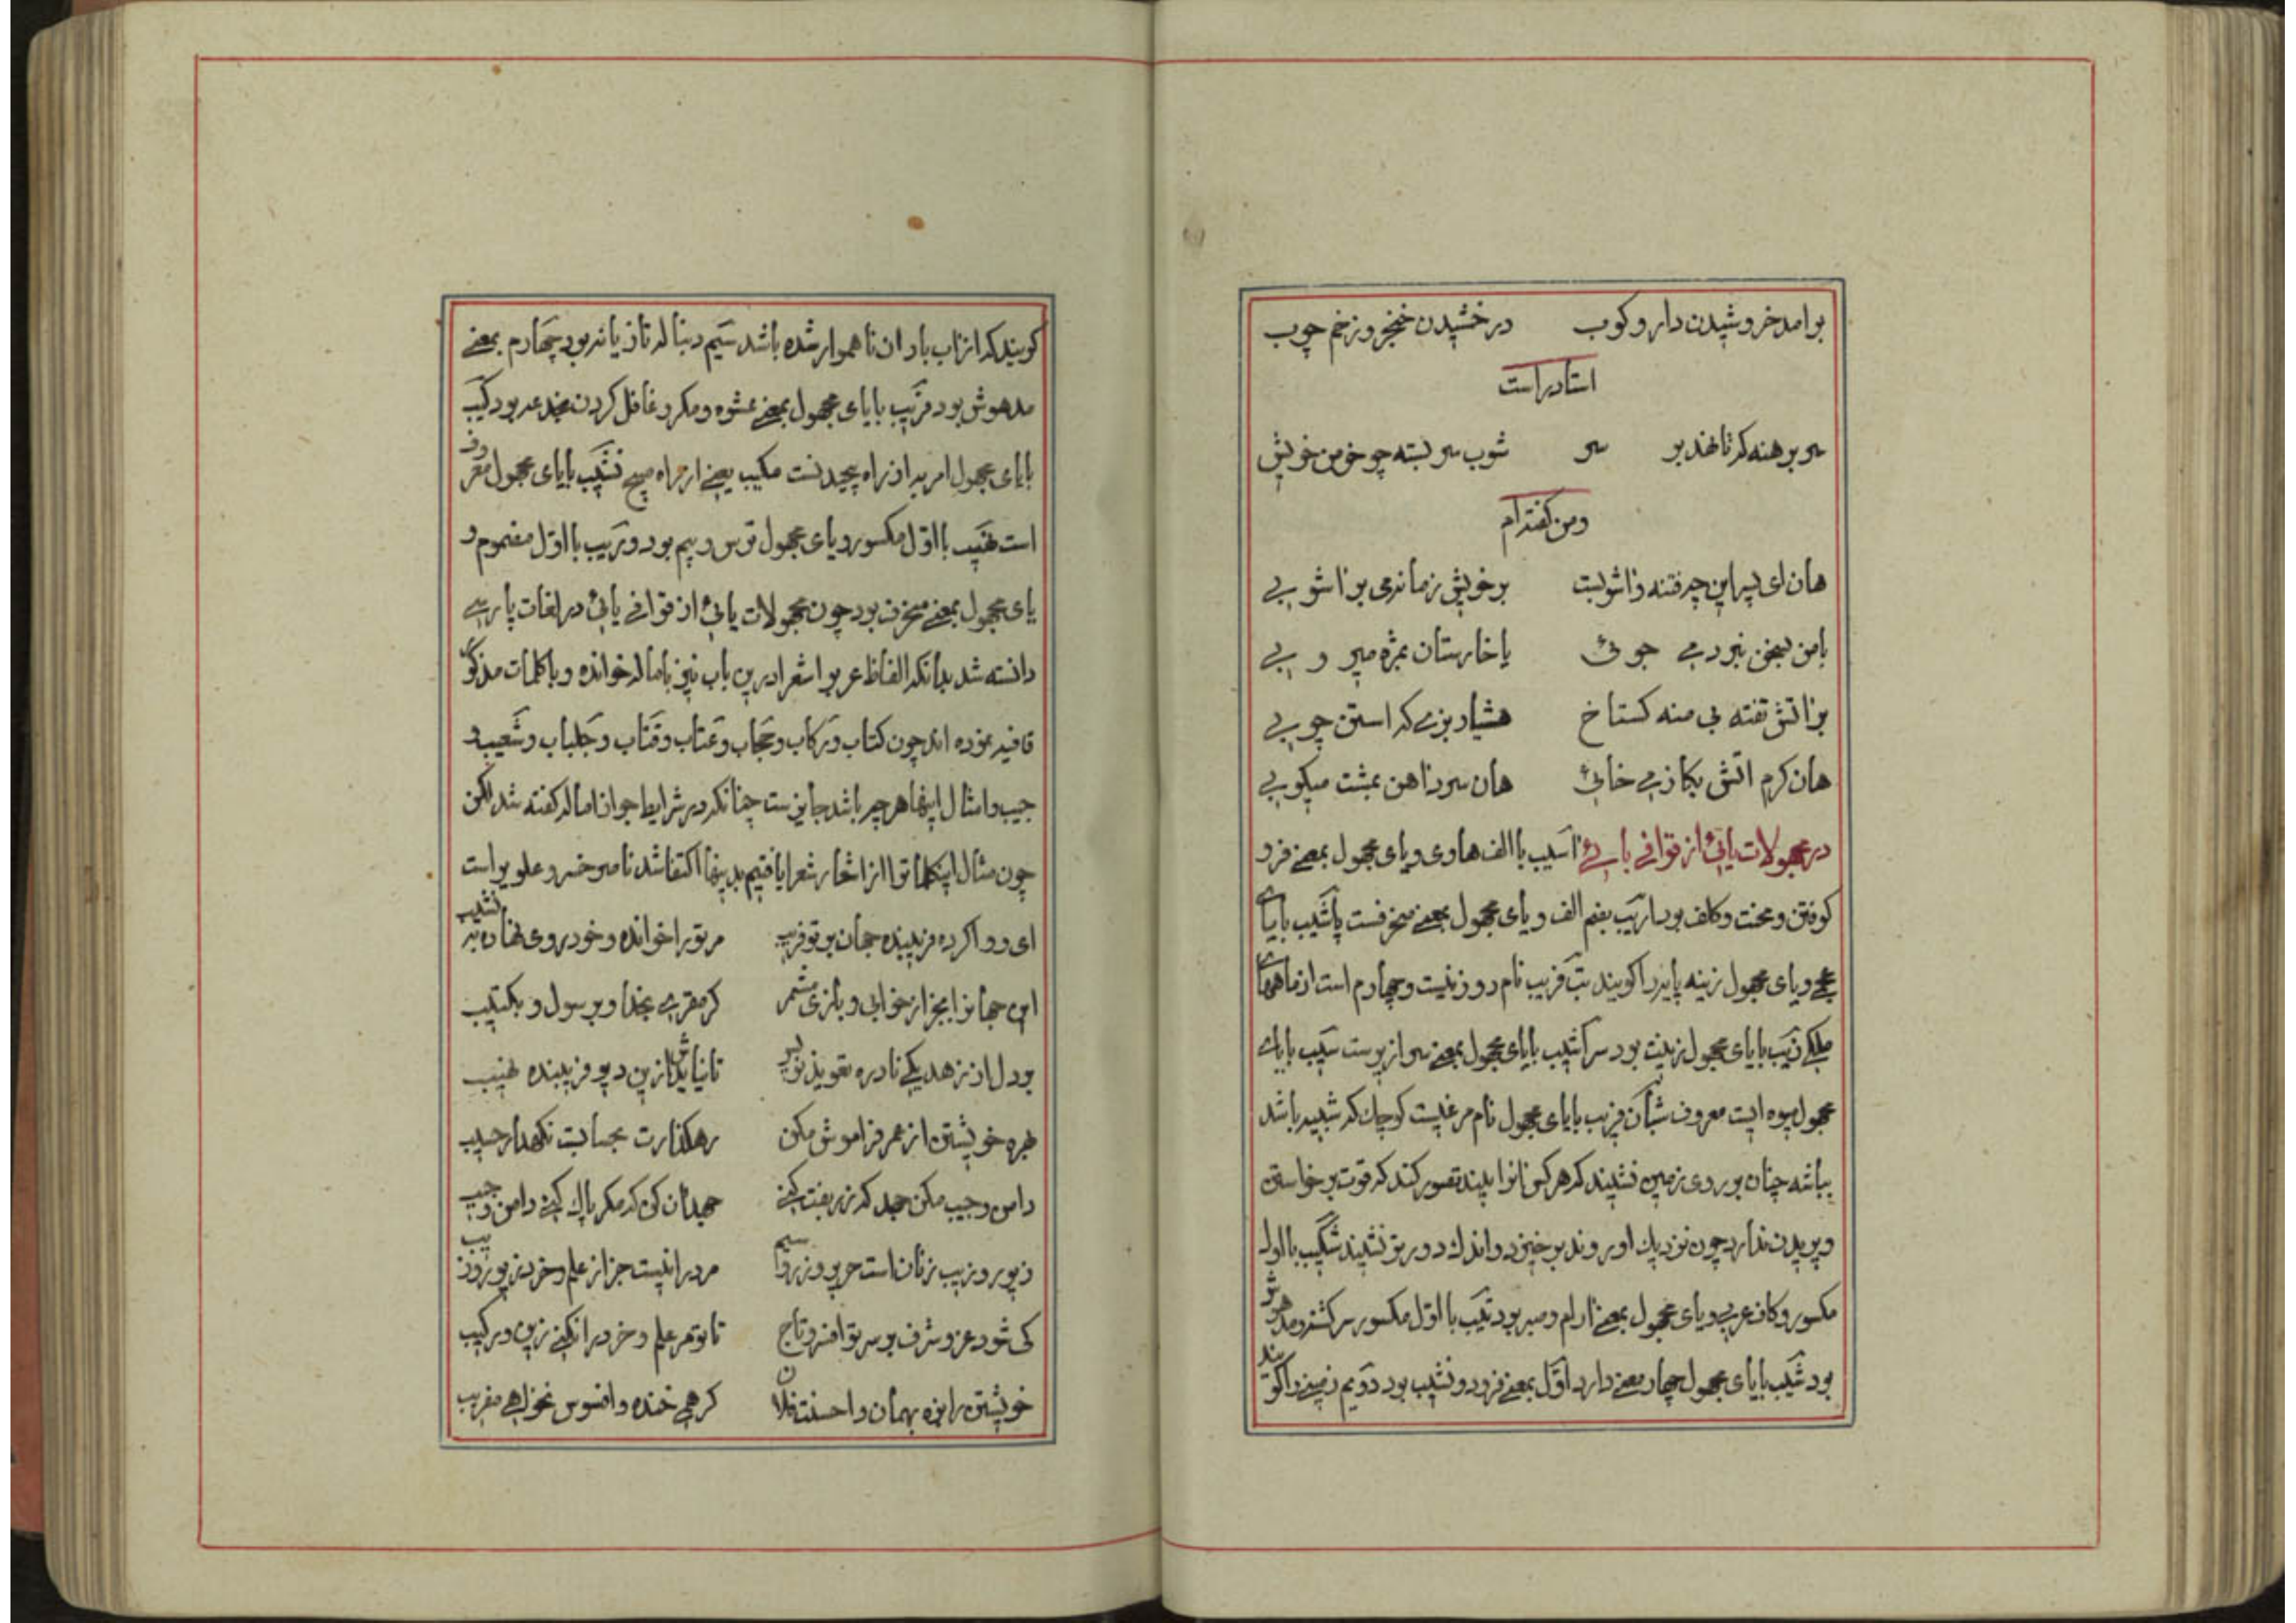 برامد خروشیدن دار و کوب درخشیدن خنجر و زخم چوب
استادراست
سر برهنه کرتا نهد بر سر شوب سر بسته چو خرمن خویش
ومن کفته‌ام
هان ای پسر این چه فتنه واشوبست بر خویش زمانه می براشوبی
با من بسخن نبرد می جوئی با خارستان بمژه میروبی
بر اتش تفته پی منه کستاخ هشیار بزی که استن چوبی
هان کرم اتش بکاز می خائی هان سرد اهن بمشت میکوبی
در مجهولات یائی از قوافی بائی اسیب با الف هاوی و یای مجهول بمعنی فرو
کوفتن و محنت و کلفت بود اریب بضم الف و یای مجهول بمعنی منحرفست پاشیب با پای
عجمی و یای مجهول زینه پایه را کویند بت فریب نام دو روزنیست و چهارم است از ماههای
ملکی زیب با یای مجهول زینت بود سراشیب با یای مجهول بمعنی سرازیرست سیب با یای
مجهول میوه ایست معروف شبان فریب با یای مجهول نام مرغیست کوچک که شبیه باشد
بباشه چنان بر روی زمین نشیند که هر کس انرا بیند تصور کند که قوت برخواستن
و پریدن ندارد چون نزدیک او روند برخیزد و اندک دورتر نشیند شکیب با اول
مکسور و کاف عربی و یای مجهول بمعنی ارام و صبر بود تیب با اول مکسور سرکشته و مدهوش
بود شیب با یای مجهول چهار معنی دارد اول بمعنی فرود و نشیب بود دویم زمینی را کویند
کویند که از اب باران ناهموار شده باشد سیم دنباله تازیانه بود چهارم بمعنی
مدهوش بود فریب با یای مجهول بمعنی عشوه و مکر و غافل کردن بخدعه بود کیب
با یای مجهول امر به از راه پیچیدنست مکیب یعنی از راه مپیچ نشیب با یای مجهول معروف
است نهیب با اول مکسور و یای مجهول ترس و بیم بود وریب با اول مضموم و
یای مجهول بمعنی منحرف بود چون مجهولات یائی از قوافی بائی در لغات پارسی
دانسته شد بدانکه الفاظ عربی را شعرا درین باب نیز باماله خوانده و با کلمات مذکور
قافیه نموده اند چون کتاب و رکاب و حجاب و عتاب و قتاب و جلباب و شعیب و
جیب و امثال اینها هر چه باشد جایزست چنانکه در شرایط جواز اماله کفته شد لکن
چون مثال اینکلمات را از اشعار شعرا یافتیم بدینها اکتفا شد ناصر خسرو علوی راست
ای روا کرده فریبنده جهان بر تو فریب مر ترا خوانده و خود روی نهاده بنشیب
این جهانرا بجز از خوابی و بازی مشمر کر مقری بخدا و برسول و بکتیب
بر دل از زهد یکی نادره تعویذ نویس تا نیایدش ازین دیو فریبنده نهیب
بهره خویشتن از عمر فراموش مکن رهکذارت بحسابست نکهدار حسیب
دامن و جیب مکن جهد که زربفت کنی جهد ان کن که مکر پاک کنی دامن و جیب
زیور و زیب زنان است حریر و زر و سیم مرد را نیست جز از علم و خرد زیور و زیب
کی شود عز و شرف بر سر تو افسر و تاج تا تو مر علم و خرد را نکنی زین و رکیب
خویشتن را بزه بهمان و احسنت فلان کر همی خنده و افسوس نخواهی مفریب